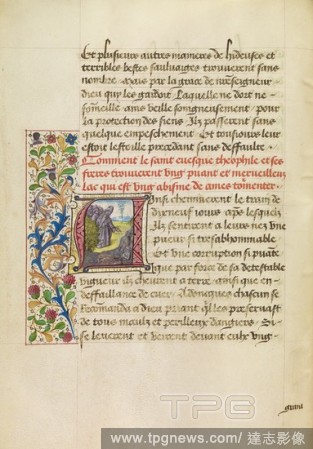 Et plusieurs autres manieres de hideuses et
terribles bestes sauluaiges trouuerent sans
nombre. Mais par la grace de nostreseigneur
dieu quy les gardoit Laquelle ne dort ne
sommeille ains veille songneusement pour
la protection des siens Ilz passerent sans
quelque empeschement Et tousiours leur
estoit lestoille precedant sans deffaulte.
Comment le saint euesque theophile et ses
freres trouuerent vng puant et merueilleux
lac qui est vng abisme de ames tourmentees
Ainsi cheminerent le train de
dixneuf iours apres lesquelz
Ilz sentirent a leurs nez vne
pueur si tresabhominable
Et vne corruption si puante
que par force de sa detestable
vigueur ilz cheurent a terre ainsi que en
deffaillance de cuer Adoncques chascun se
Recomanda a dieu priant quil les preseruast
de tous maulx et perilleux dangiers Si
se leuerent et veirent deuant eulx vng
TPG
www.tpgnews.com/達志影像